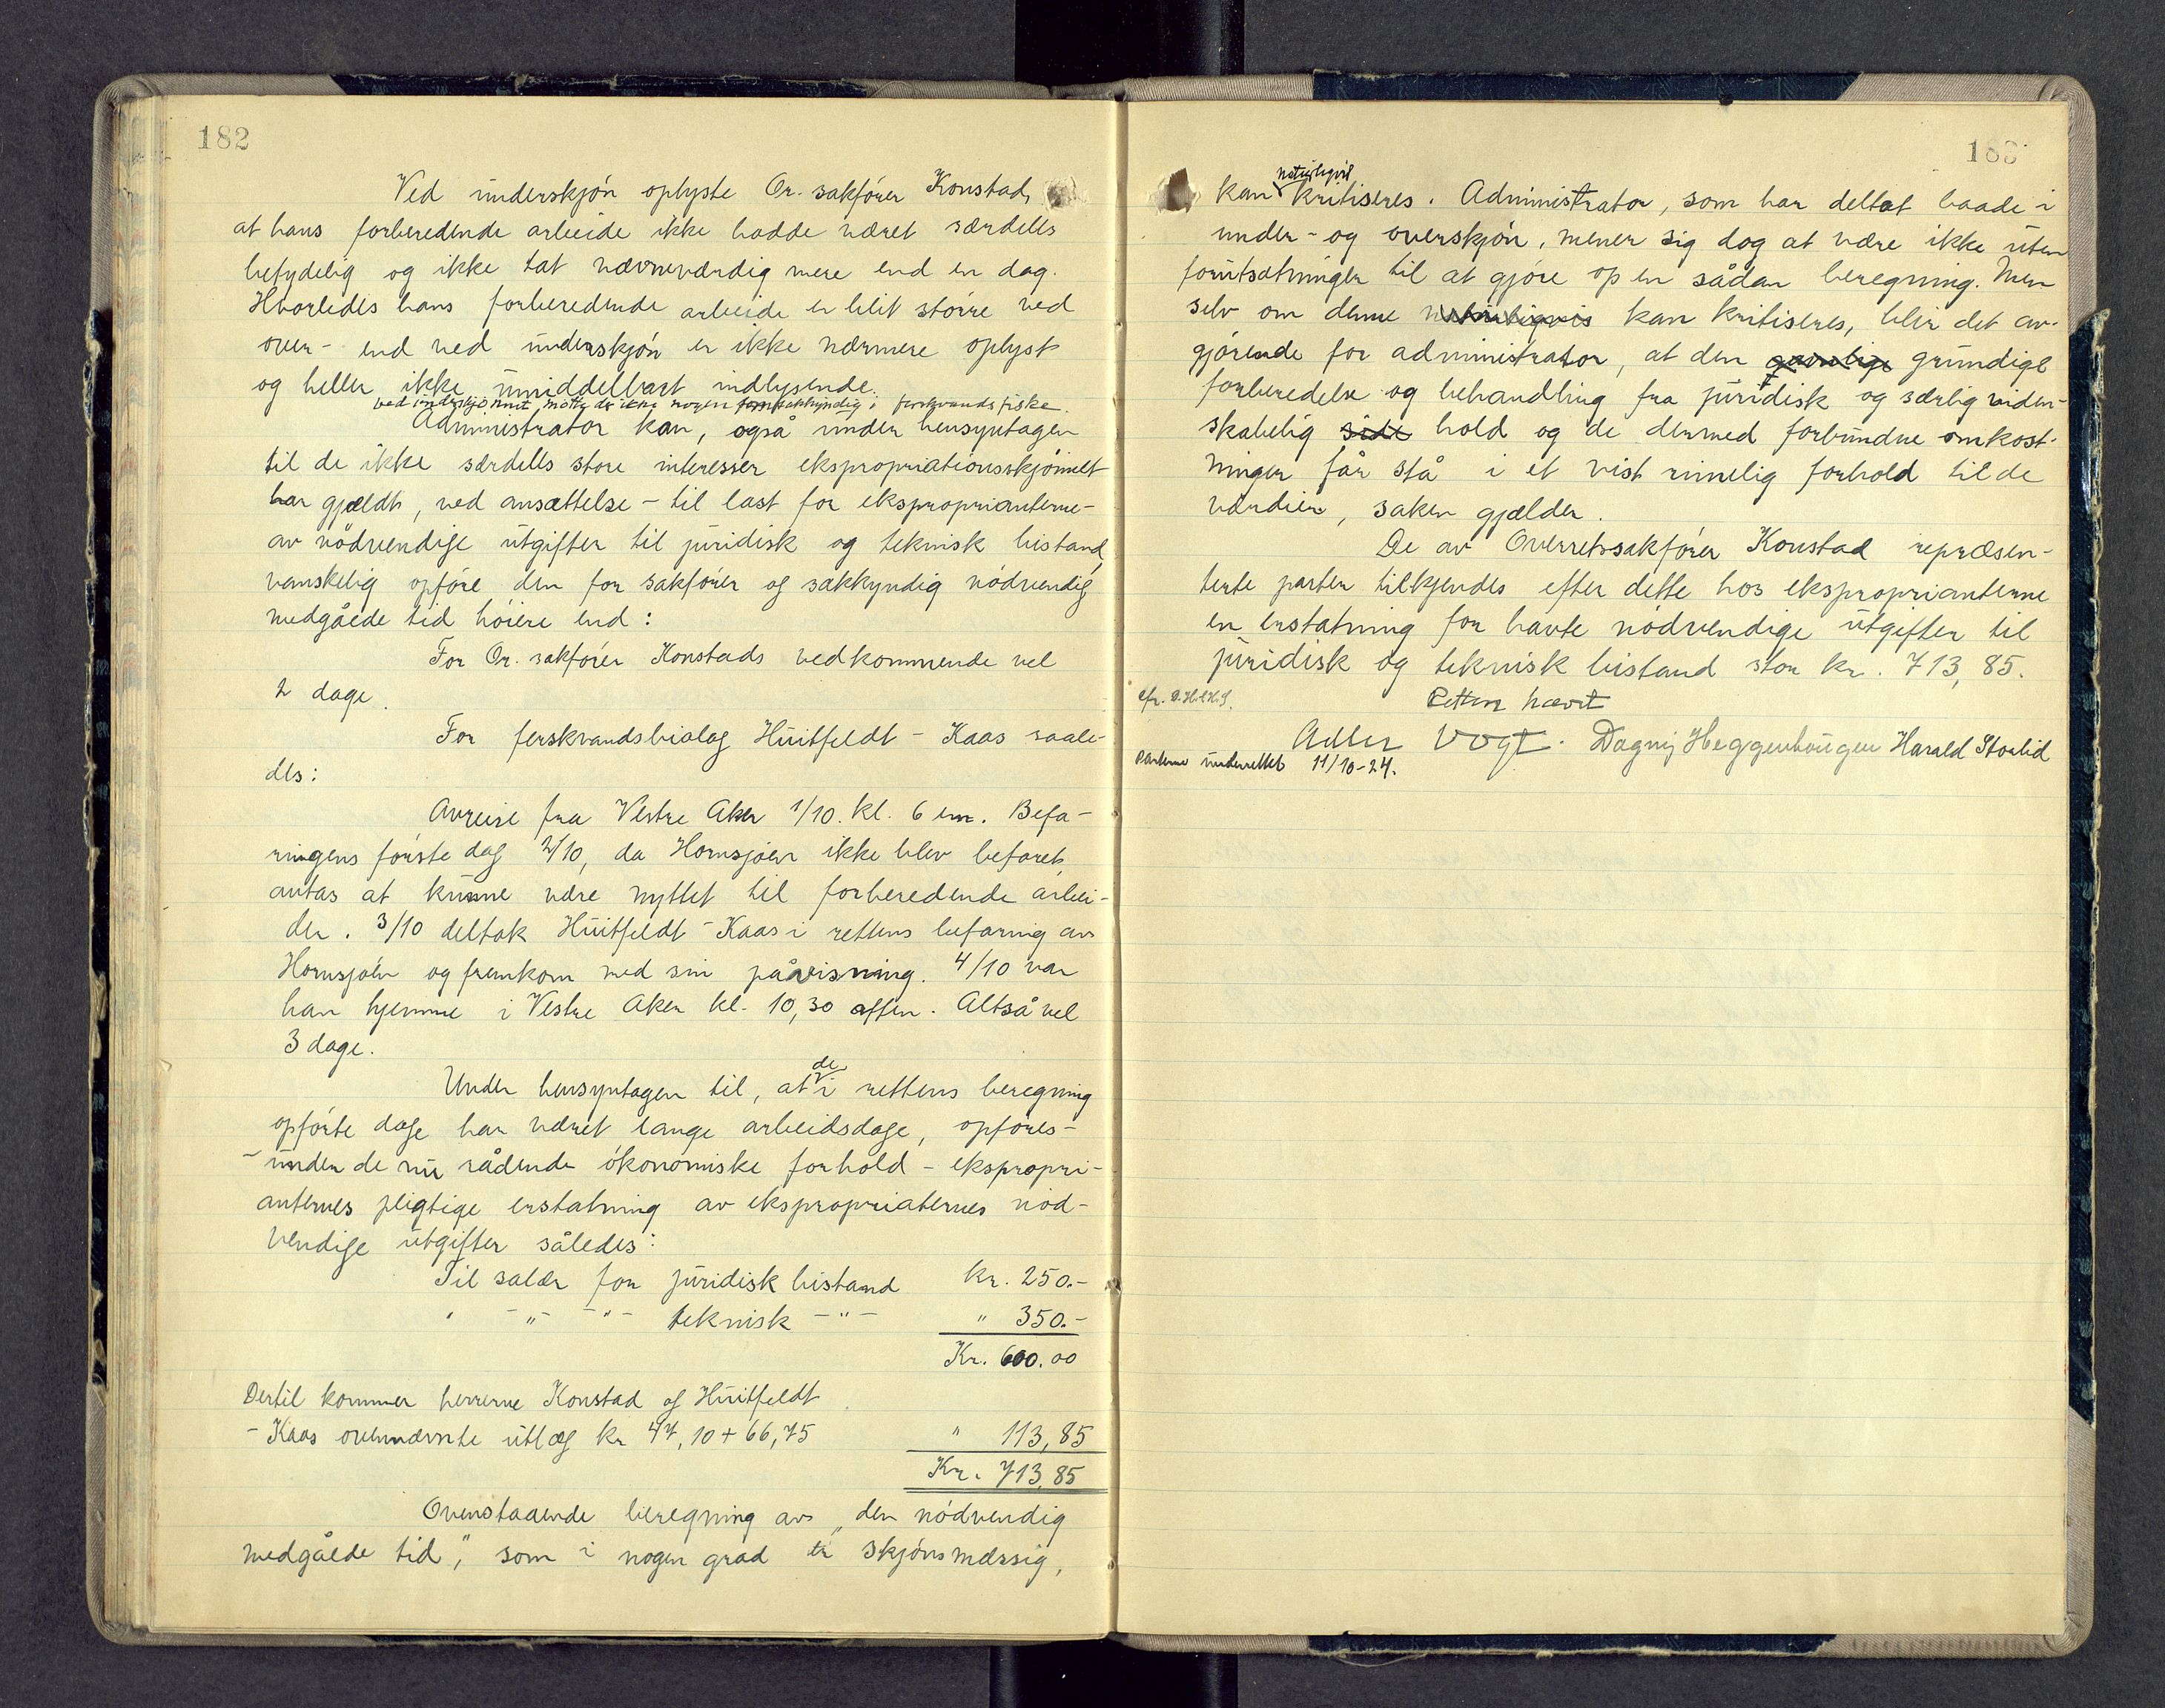 182
Ved underskjøn oplyste Or. sakfører Konstad,
at hans forberedende arbeide ikke hadde været særdeles
betydelig og ikke tat nævneværdig mere end en dag.
Hvorledes hans forberedende arbeide er blit større ved
over- end ved underskjøn er ikke nærmere oplyst
og heller ikke umiddelbart indlysende.
ved underskjønnet møtte der ikke nogen sakkyndig i ferskvandsfiske.
Administrator kan, også under hensyntagen
til de ikke særdeles store interesser ekspropriationsskjønnet
har gjældt, ved ansættelse - til last for eksproprianterne -
av nødvendige utgifter til juridisk og teknisk bistand,
vanskelig opføre den for sakfører og sakkyndig nødvendig
medgåede tid høiere end:
For Or. sakfører Konstads vedkommende vel
2 dage.
For ferskvandsbiolog Huitfeldt - Kaas saale-
des:
Avreise fra Vestre Aker 1/10. kl. 6 em. Befa-
ringens første dag 2/10, da Hornsjøen ikke blev befaret,
antas at kunne være nyttet til forberedende arbei-
der. 3/10 deltok Huitfeldt - Kaas i rettens befaring av
Hornsjøen og fremkom med sin påvisning. 4/10 var
han hjemme i Vestre Aker kl. 10,30 aften. Altså vel
3 dage.
Under hensyntagen til, at de i rettens beregning
opførte dage har været lange arbeidsdage, opføres -
- under de nu rådende økonomiske forhold - ekspropri-
anternes pligtige erstatning av ekspropriaternes nød-
vendige utgifter således:
Til salær for juridisk bistand kr. 250.-
" -"- -"- teknisk -"- " 350.-
Kr. 600.00
Dertil kommer herrerne Konstad og Huitfeldt
- Kaas ovennævnte utlæg kr 47,10 + 66,75 " 113,85
Kr. 713,85
Ovenstaaende beregning av "den nødvendig
medgåede tid", som i nogen grad er skjønsmæssig,
183
kan naturligvis kritiseres. Administrator, som har deltat baade i
under- og overskjøn, mener sig dog at være ikke uten
forutsætninger til at gjøre op en sådan beregning. Men
selv om denne naturligvis kan kritiseres, blir det av-
gjørende for administrator, at den grundige
forberedelse og behandling fra juridisk og særlig viden-
skabelig side hold og de dermed forbundne omkost-
ninger får stå i et vist rimelig forhold til de
værdier, saken gjælder.
De av Overretssakfører Konstad repræsen-
terte parter tilkjendes efter dette hos eksproprianterne
en erstatning for havte nødvendige utgifter til
juridisk og teknisk bistand stor kr. 713,85.
Retten hævet
Adler Vogt. Dagny Heggenhougen Harald Storlid
Parterne underrettet 11/10-24.